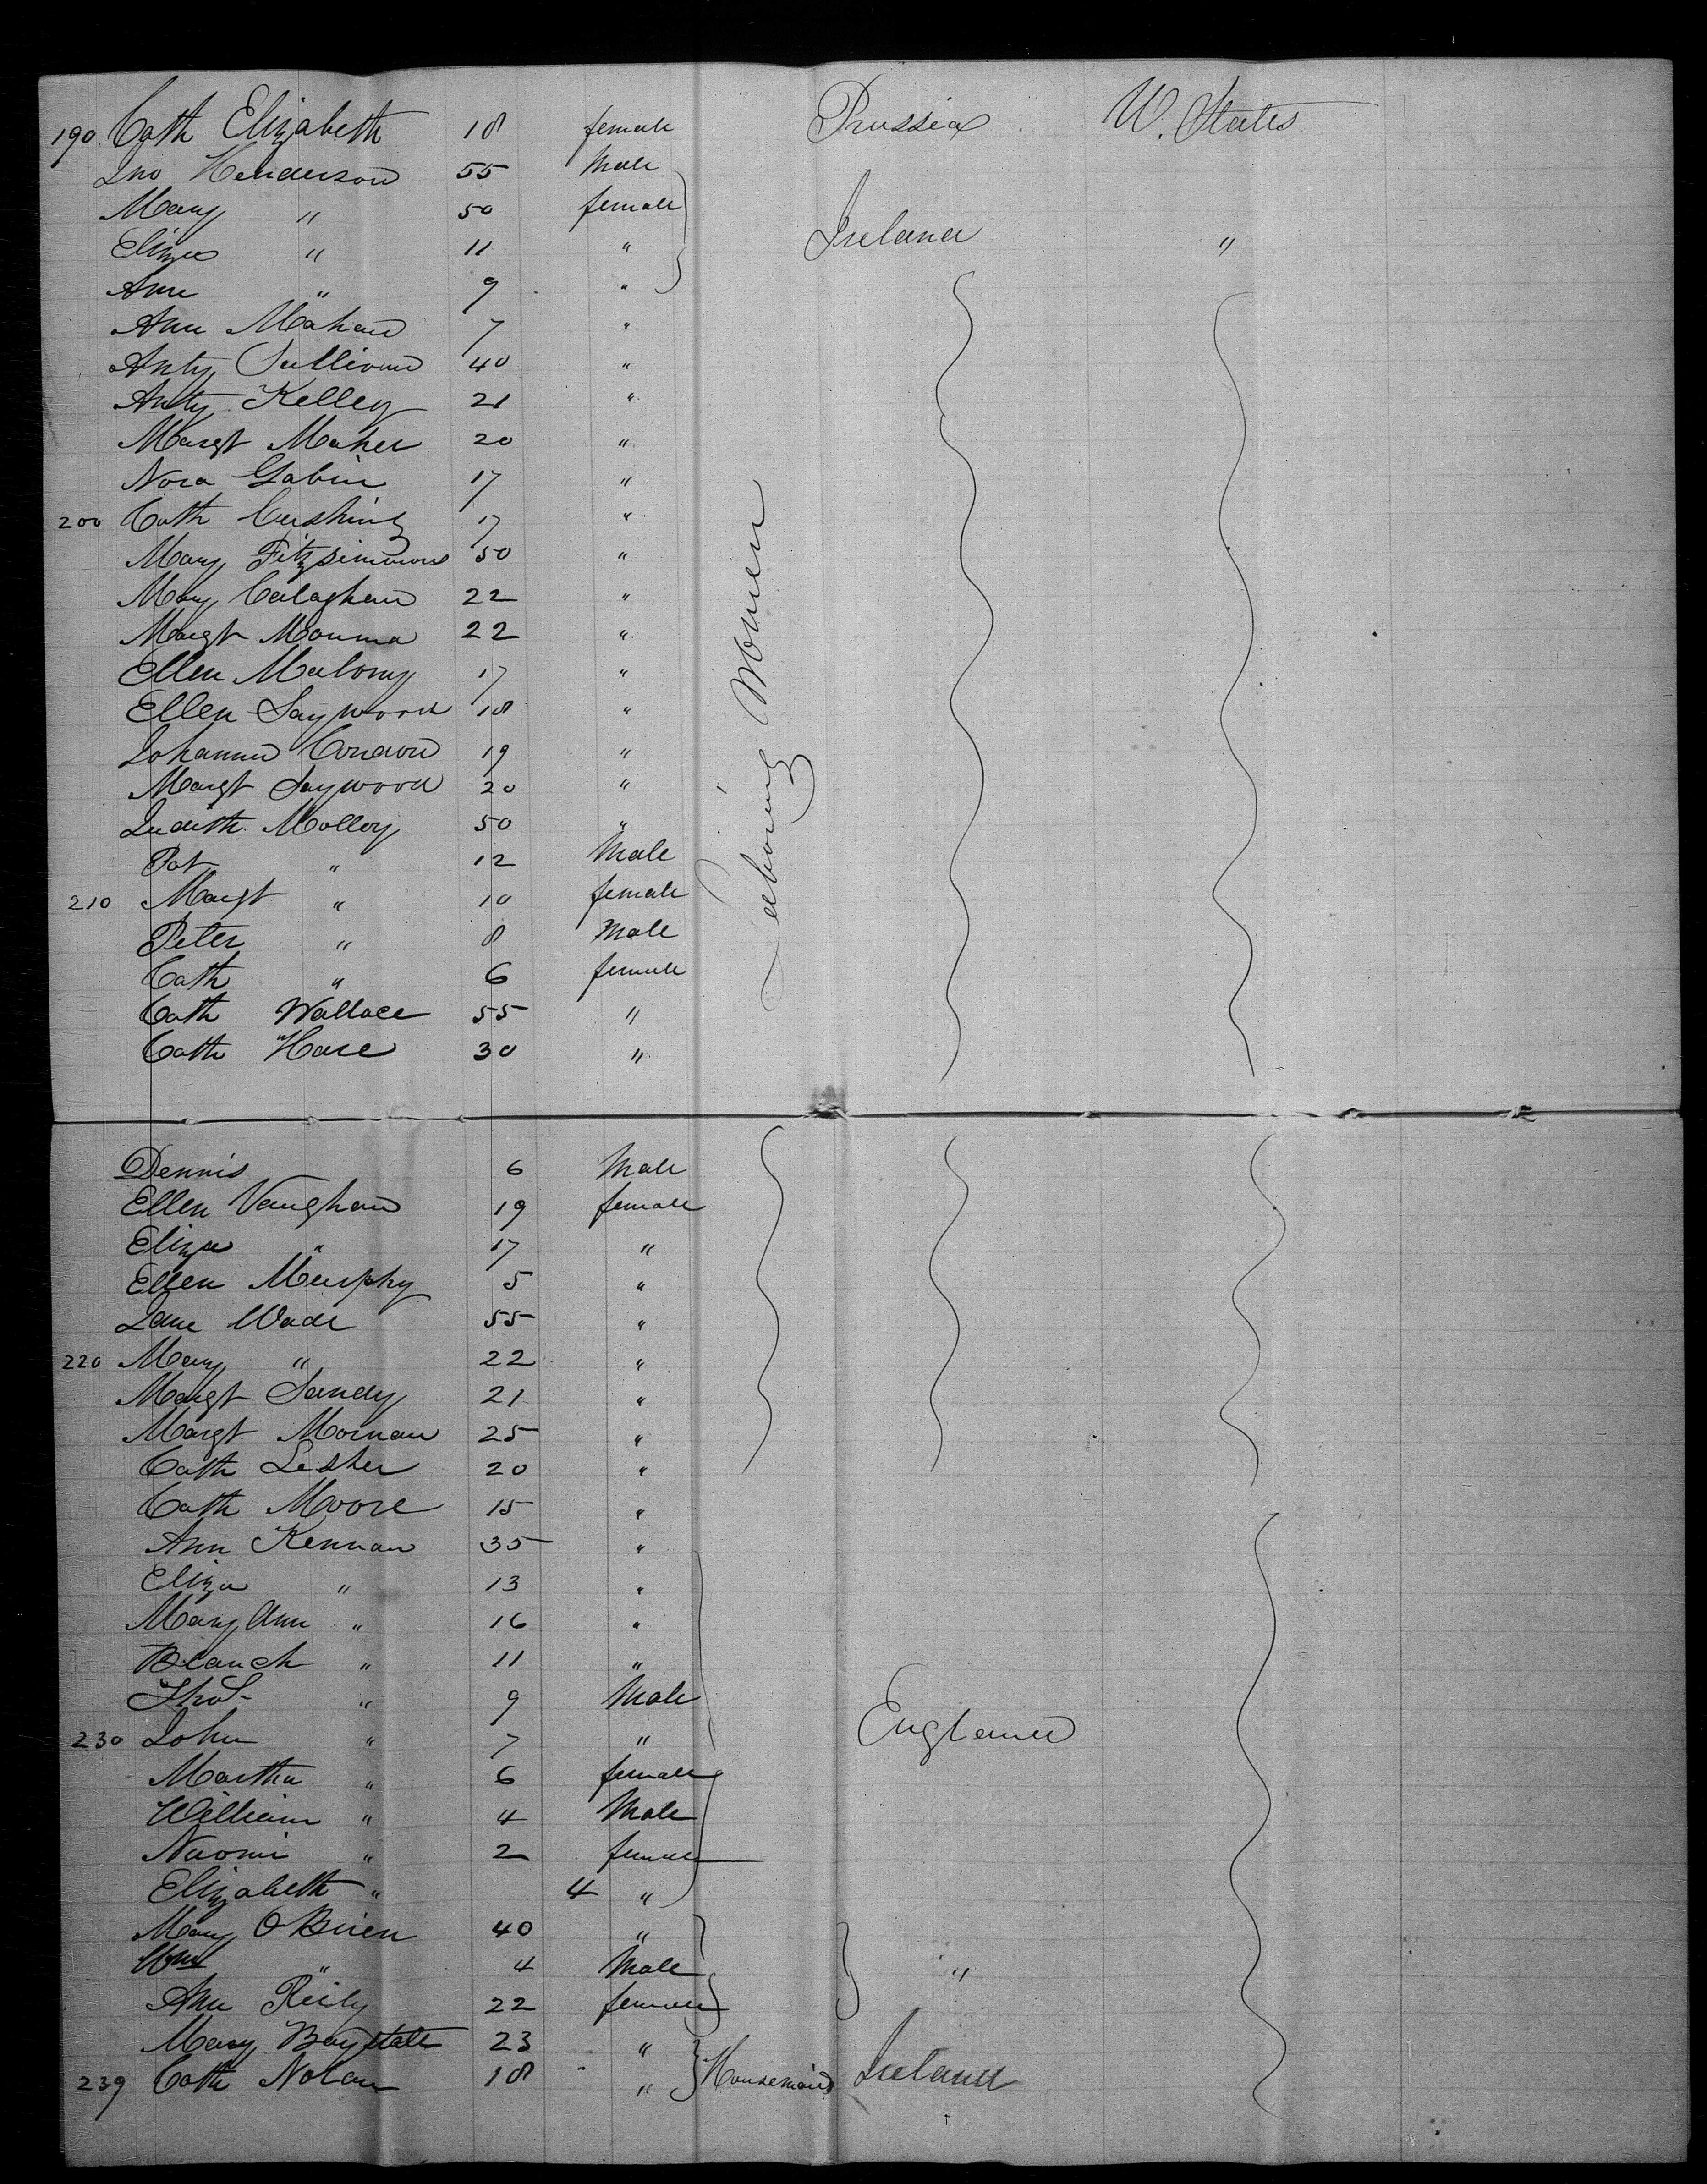 190 Cath Elizabeth 18 female Prussia U. States
Jno Henderson 55 Male
Mary " 50 female
Eliza " 11 " Ireland "
Ann " 9 "
Ann Mahan 7 "
Anty Sullivan 40 "
Anty Kelley 21 "
Margt Maher 20 "
Nora Gabin 17 "
200 Cath Cushing 17 "
Mary Fitzsimmons 50 "
Mary Calaghan 22 "
Margt 22 "
Ellen Malony 17 "
Ellen Laywood 18 "
Johanna Condon 19 "
Margt Laywood 20 "
Judith Molloy 50 "
Pat " 12 Male
210 Margt " 10 female
Peter " 8 Male
Cath " 6 female
Cath Wallace 55 "
Cath Hare 30 "
Labouring Women
Dennis 6 Male
Ellen Vaughan 19 female
Eliza " 17 "
Ellen Murphy 5 "
Jane Wade 55 "
220 Mary " 22 "
Margt Landy 21 "
Margt Mornan 25 "
Cath Lesher 20 "
Cath Moore 15 "
Ann Kennan 35 "
Eliza " 13 "
Mary Ann " 16 "
Blanch " 11 "
Thos " 9 Male
230 John " 7 " England
Martha " 6 female
William " 4 Male
Naomi " 2 female
Elizabeth " 4 "
Mary O Brien 40 "
Wm " 4 Male "
Ann Reily 22 female
Mary Baystate 23 "
239 Cath Nolan 18 " Housemaids Ireland